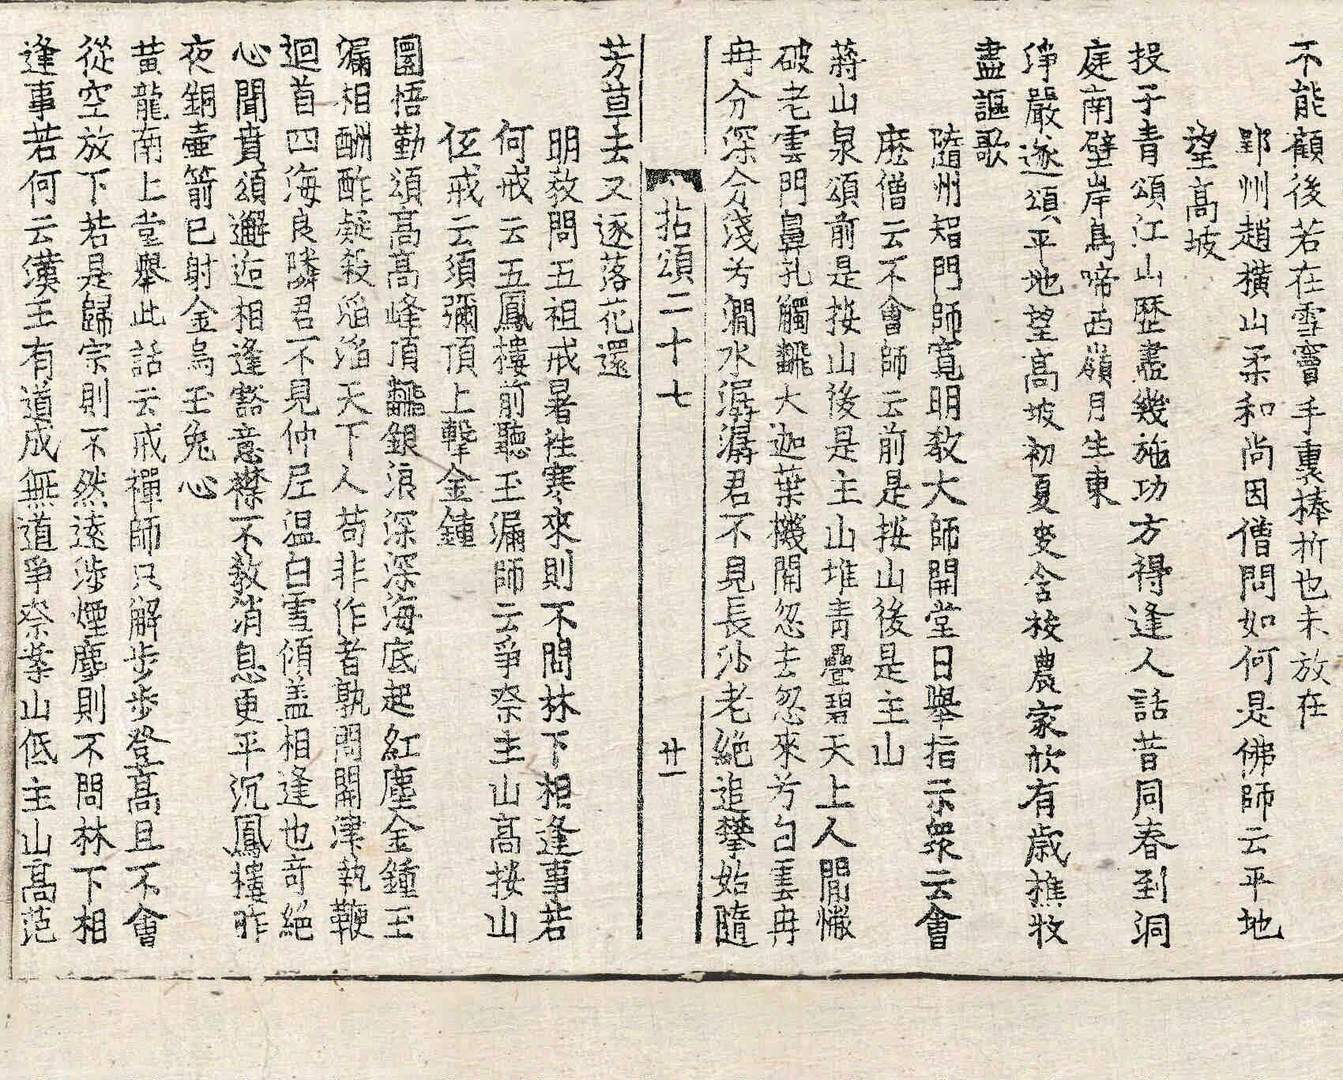 不能顧後若在雪竇手裏棒折也未放在
郢州趙橫山柔和尚因僧問如何是佛師云平地
望高坡
投子青頌江山歷盡幾施功方得逢人話昔同春到洞
庭南壁岸鳥啼西嶺月生東
淨嚴遂頌平地望高坡初夏麥含梭農家欣有歲樵牧
盡謳歌
隨州智門師寬明教大師開堂日擧指示衆云會
麽僧云不會師云前是按山後是主山
蔣山泉頌前是按山後是主山堆靑疊碧天上人閒懶
破老雲門鼻孔觸飜大迦葉機關忽去忽來兮白雲冉
冉分深分淺兮澗水潺潺君不見長沙老絕追攀始隨
拈頌二十七
廿一
芳草去又逐落花還
明敎問五祖戒暑往寒來則不問林下相逢事若
何戒云五鳳樓前聽玉漏師云爭奈主山高按山
低戒云須彌頂上擊金鐘
圜悟勤頌高高峰頂飜銀浪深深海底起紅塵金鐘玉
漏相酬酢疑殺滔滔天下人苟非作者孰問開津執鞭
迴首四海良隣君不見仲尼温白雪傾盖相逢也奇絕
心聞賁頌邂逅相逢豁意襟不敎消息更平沉鳳樓昨
夜銅壷箭已射金烏玉兔心
黃龍南上堂擧此話云戒禪師只解步步登高且不會
從空放下若是歸宗則不然遠涉煙塵則不問林下相
逢事若何云漢王有道成無道爭奈案山低主山高范